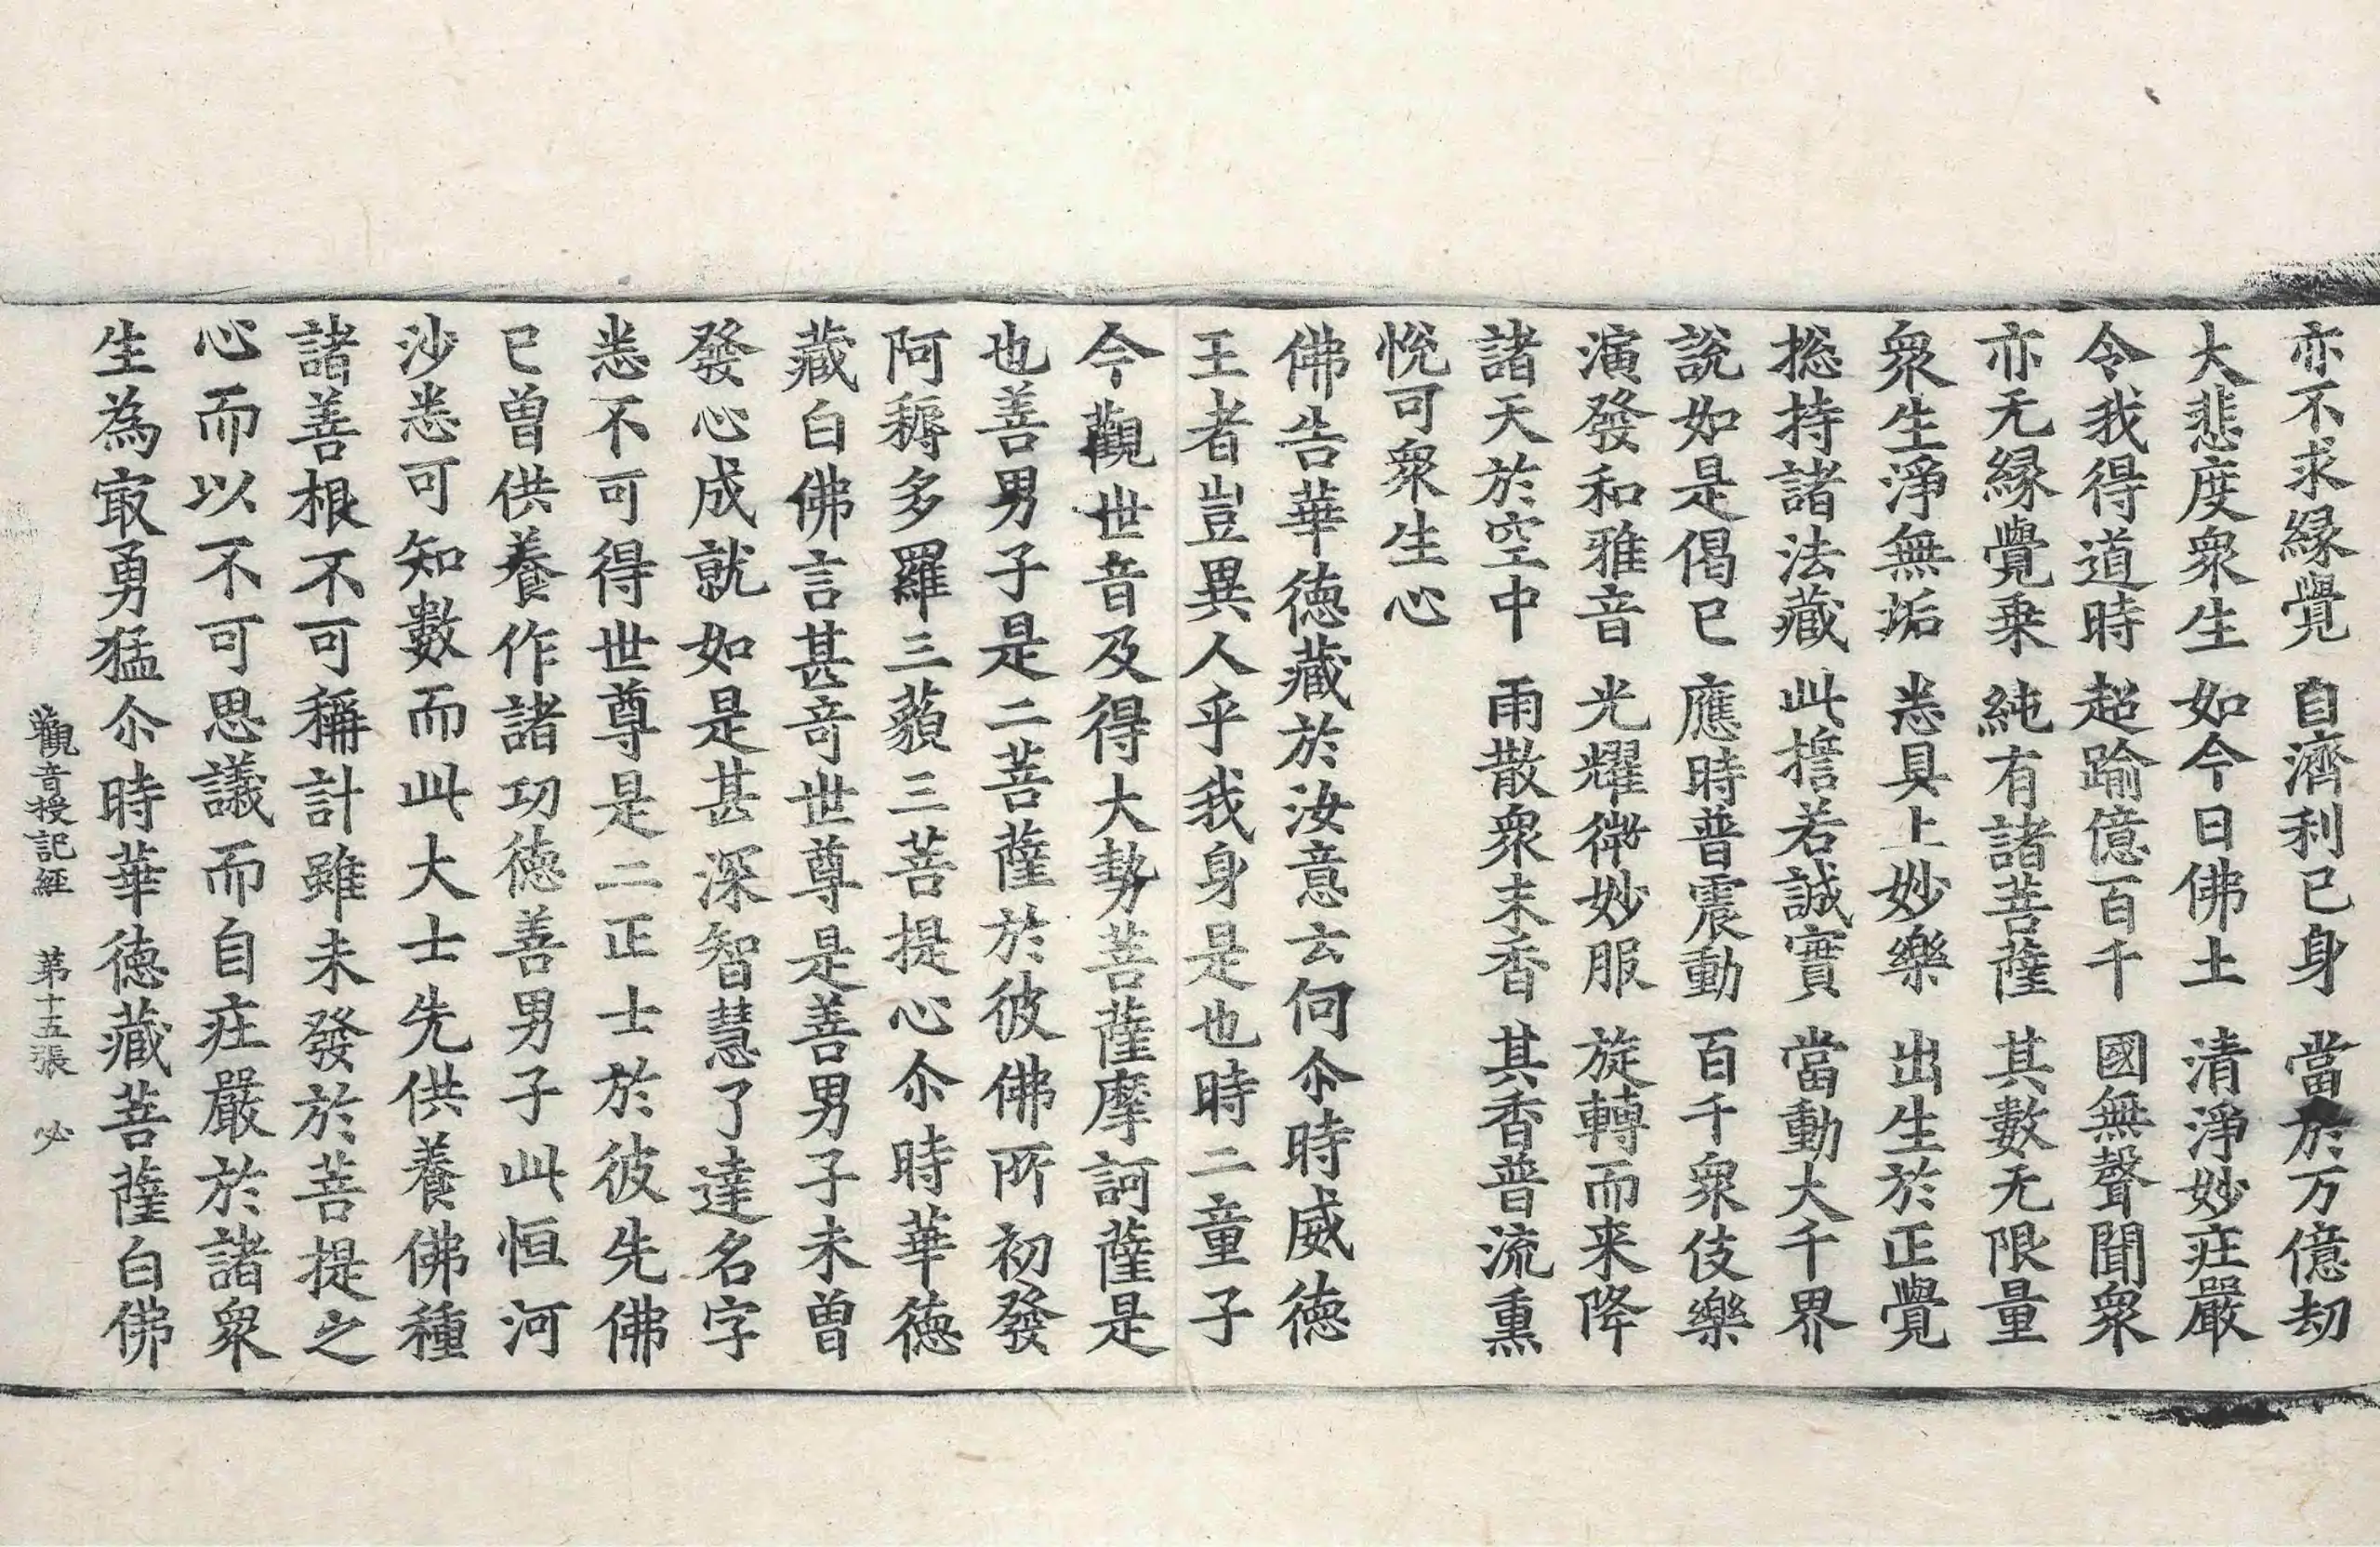 亦不求縁覺 自濟利已身 當於万億劫
大悲度衆生 如今日佛土 清淨妙疰嚴
令我得道時 超踰億百千 國無聲聞衆
亦无縁覺乗 純有諸菩薩 其數无限量
衆生淨無垢 悉具上妙樂 出生於正覺
捴持諸法藏 此誓若誠實 當動大千界
説如是偈已 應時普震動 百千衆伎樂
演發和雅音 光耀微妙服 旋轉而来降
諸天於空中 雨散衆末香 其香普流熏
悅可衆生心
佛告華徳藏於汝意云何尒時威徳
王者豈異人乎我身是也時二童子
今觀世音及得大勢菩薩摩訶薩是
也善男子是二菩薩於彼佛所初發
阿耨多羅三藐三菩提心尒時華徳
藏白佛言甚竒世尊是善男子未曽
發心成就如是甚深智慧了達名字
悉不可得世尊是二正士於彼先佛
已曽供養作諸功徳善男子此恒河
沙悉可知數而此大士先供養佛種
諸善根不可稱計雖未發於菩提之
心而以不可思議而自疰嚴於諸衆
生為㝡勇猛尒時華徳藏菩薩白佛
觀音授記經 苐十五張 必